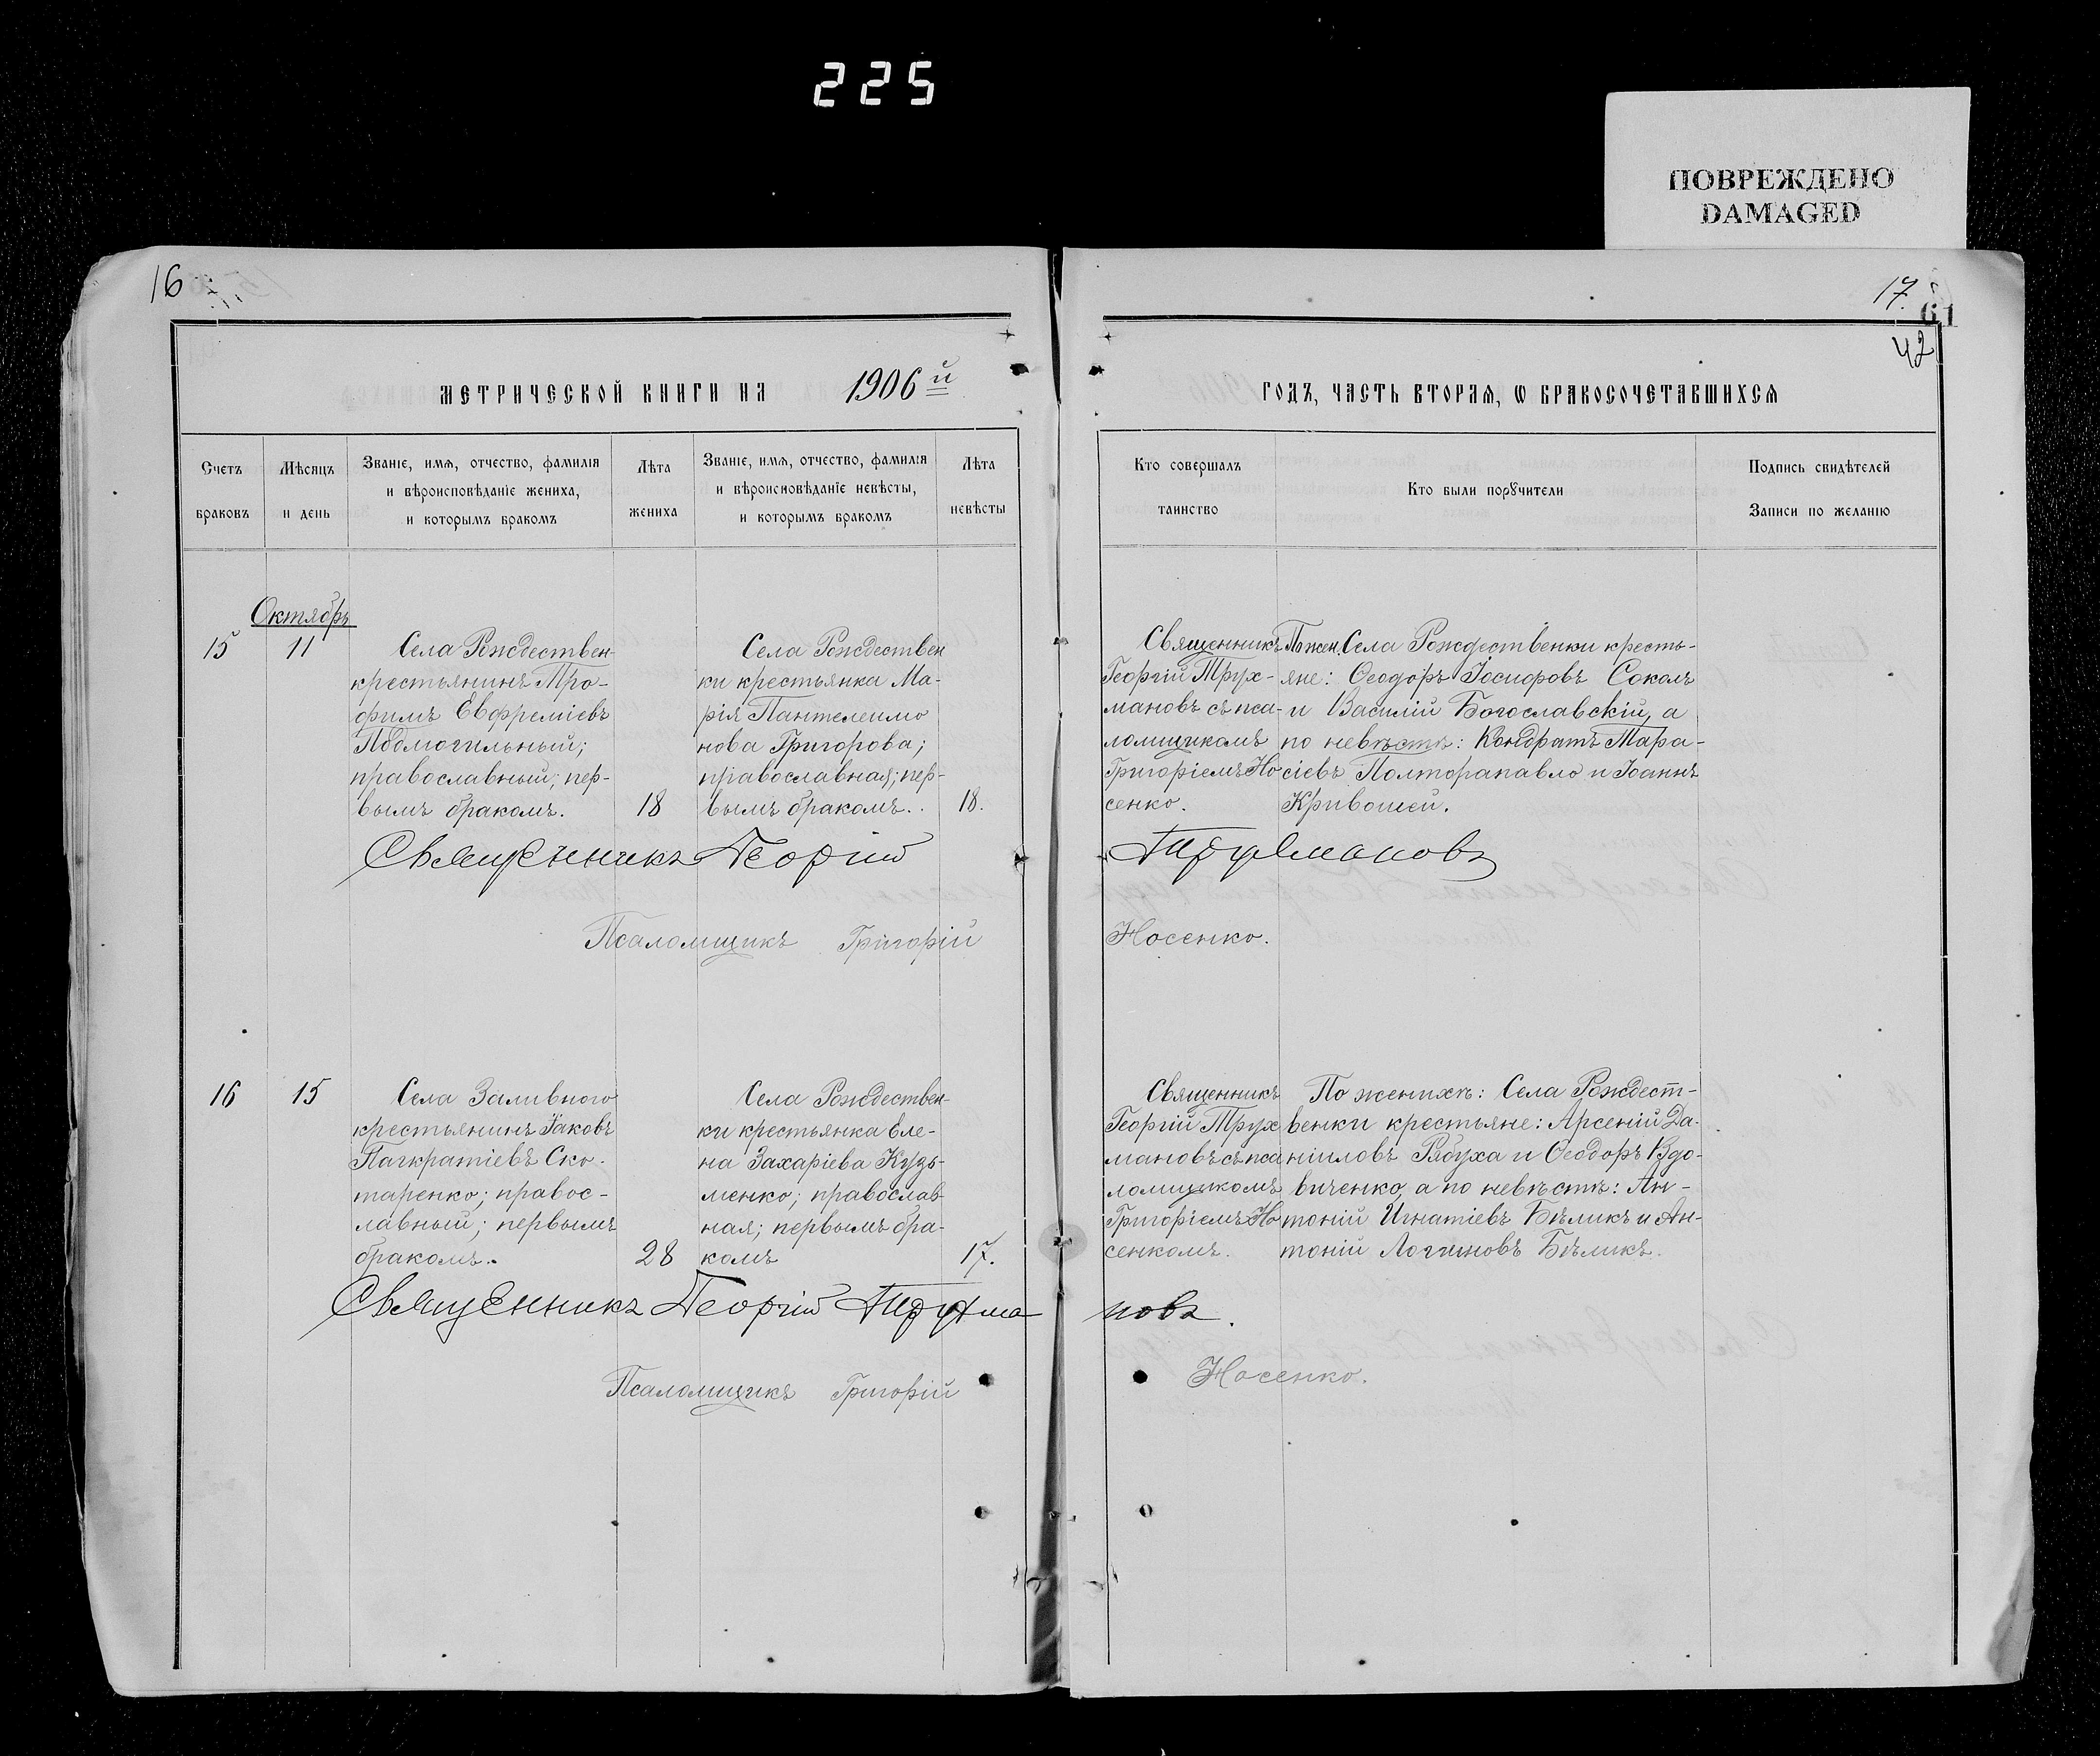 225
ПОВРЕЖДЕНО
DAMAGED
16
17.
61
42
МЕТРИЧЕСКОЙ КНИГИ НА 1906й
ГОДЪ, ЧАСТЬ ВТОРАѦ, Ѡ БРАКОСОЧЕТАВШИХСѦ
Счетъ
браковъ
Мѣсяцъ
и день
Званіе, имѧ, отчество, фамиліѧ
и вѣроисповѣданіе жениха,
и которымъ бракомъ
Лѣта
жениха
Званіе, имѧ, отчество, фамиліѧ
и вѣроисповѣданіе невѣсты,
и которымъ бракомъ
Лѣта
невѣсты
Кто совершалъ
таинство
Кто были порꙋчители
Подпись свидѣтелей
Записи по желанію
Октябрь
15
11
Села Рождествен-
крестьянинъ Тро-
фимъ Евфреміевъ
Подмогильный;
православный; пер-
вымъ бракомъ.
18
Села Рождествен
ки крестьянка Ма-
рія Пантелеимо
нова Григорова;
православная; пер-
вымъ бракомъ.
18.
Священникъ
Георгій Трух-
мановъ съ пса-
ломщикомъ
Григоріемъ Но
сенко.
По жен. Села Рождественки кресть-
яне: Ѳеодоръ Іосифовъ Соколъ
и Василій Богославскій, а
по невѣстѣ: Кондратъ Мара-
сіевъ Полторапавло и Іоаннъ
Кривошей.
Священникъ Георгій Трухмановъ
Псаломщикъ Григорій Носенко.
16
15
Села Заливного
крестьянинъ Іаковъ
Панкратіевъ Ско-
таренко; правос-
лавный; первымъ
бракомъ.
28
Села Рождествен-
ки крестьянка Еле-
на Захаріева Кузь-
менко; православ
ная; первымъ бра-
комъ
17.
Священникъ
Георгій Трух
мановъ съ пса
ломщикомъ
Григоріемъ Но
сенкомъ.
По женихѣ: Села Рождест-
венки крестьяне: Арсеній Да-
ніиловъ Рябуха и Ѳеодоръ Вдо-
виченко, а по невѣстѣ: Ан-
тоній Игнатіевъ Бѣликъ и Ан-
тоній Логиновъ Бѣликъ.
Священникъ Георгій Трухма новъ.
Псаломщикъ Григорій Носенко.